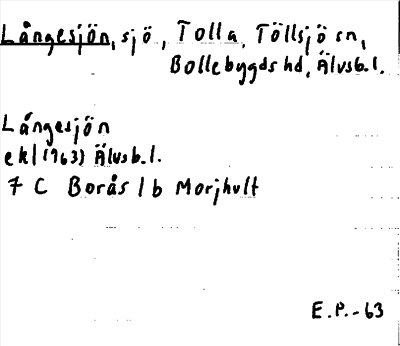 Långesjön, sjö, Tolla, Töllsjö sn,
Bollebygds hd, Älvsb. l.
Långesjön
ekl (1963) Älvsb. l.
7 C Borås 1 b Morjhult
E.P.-63